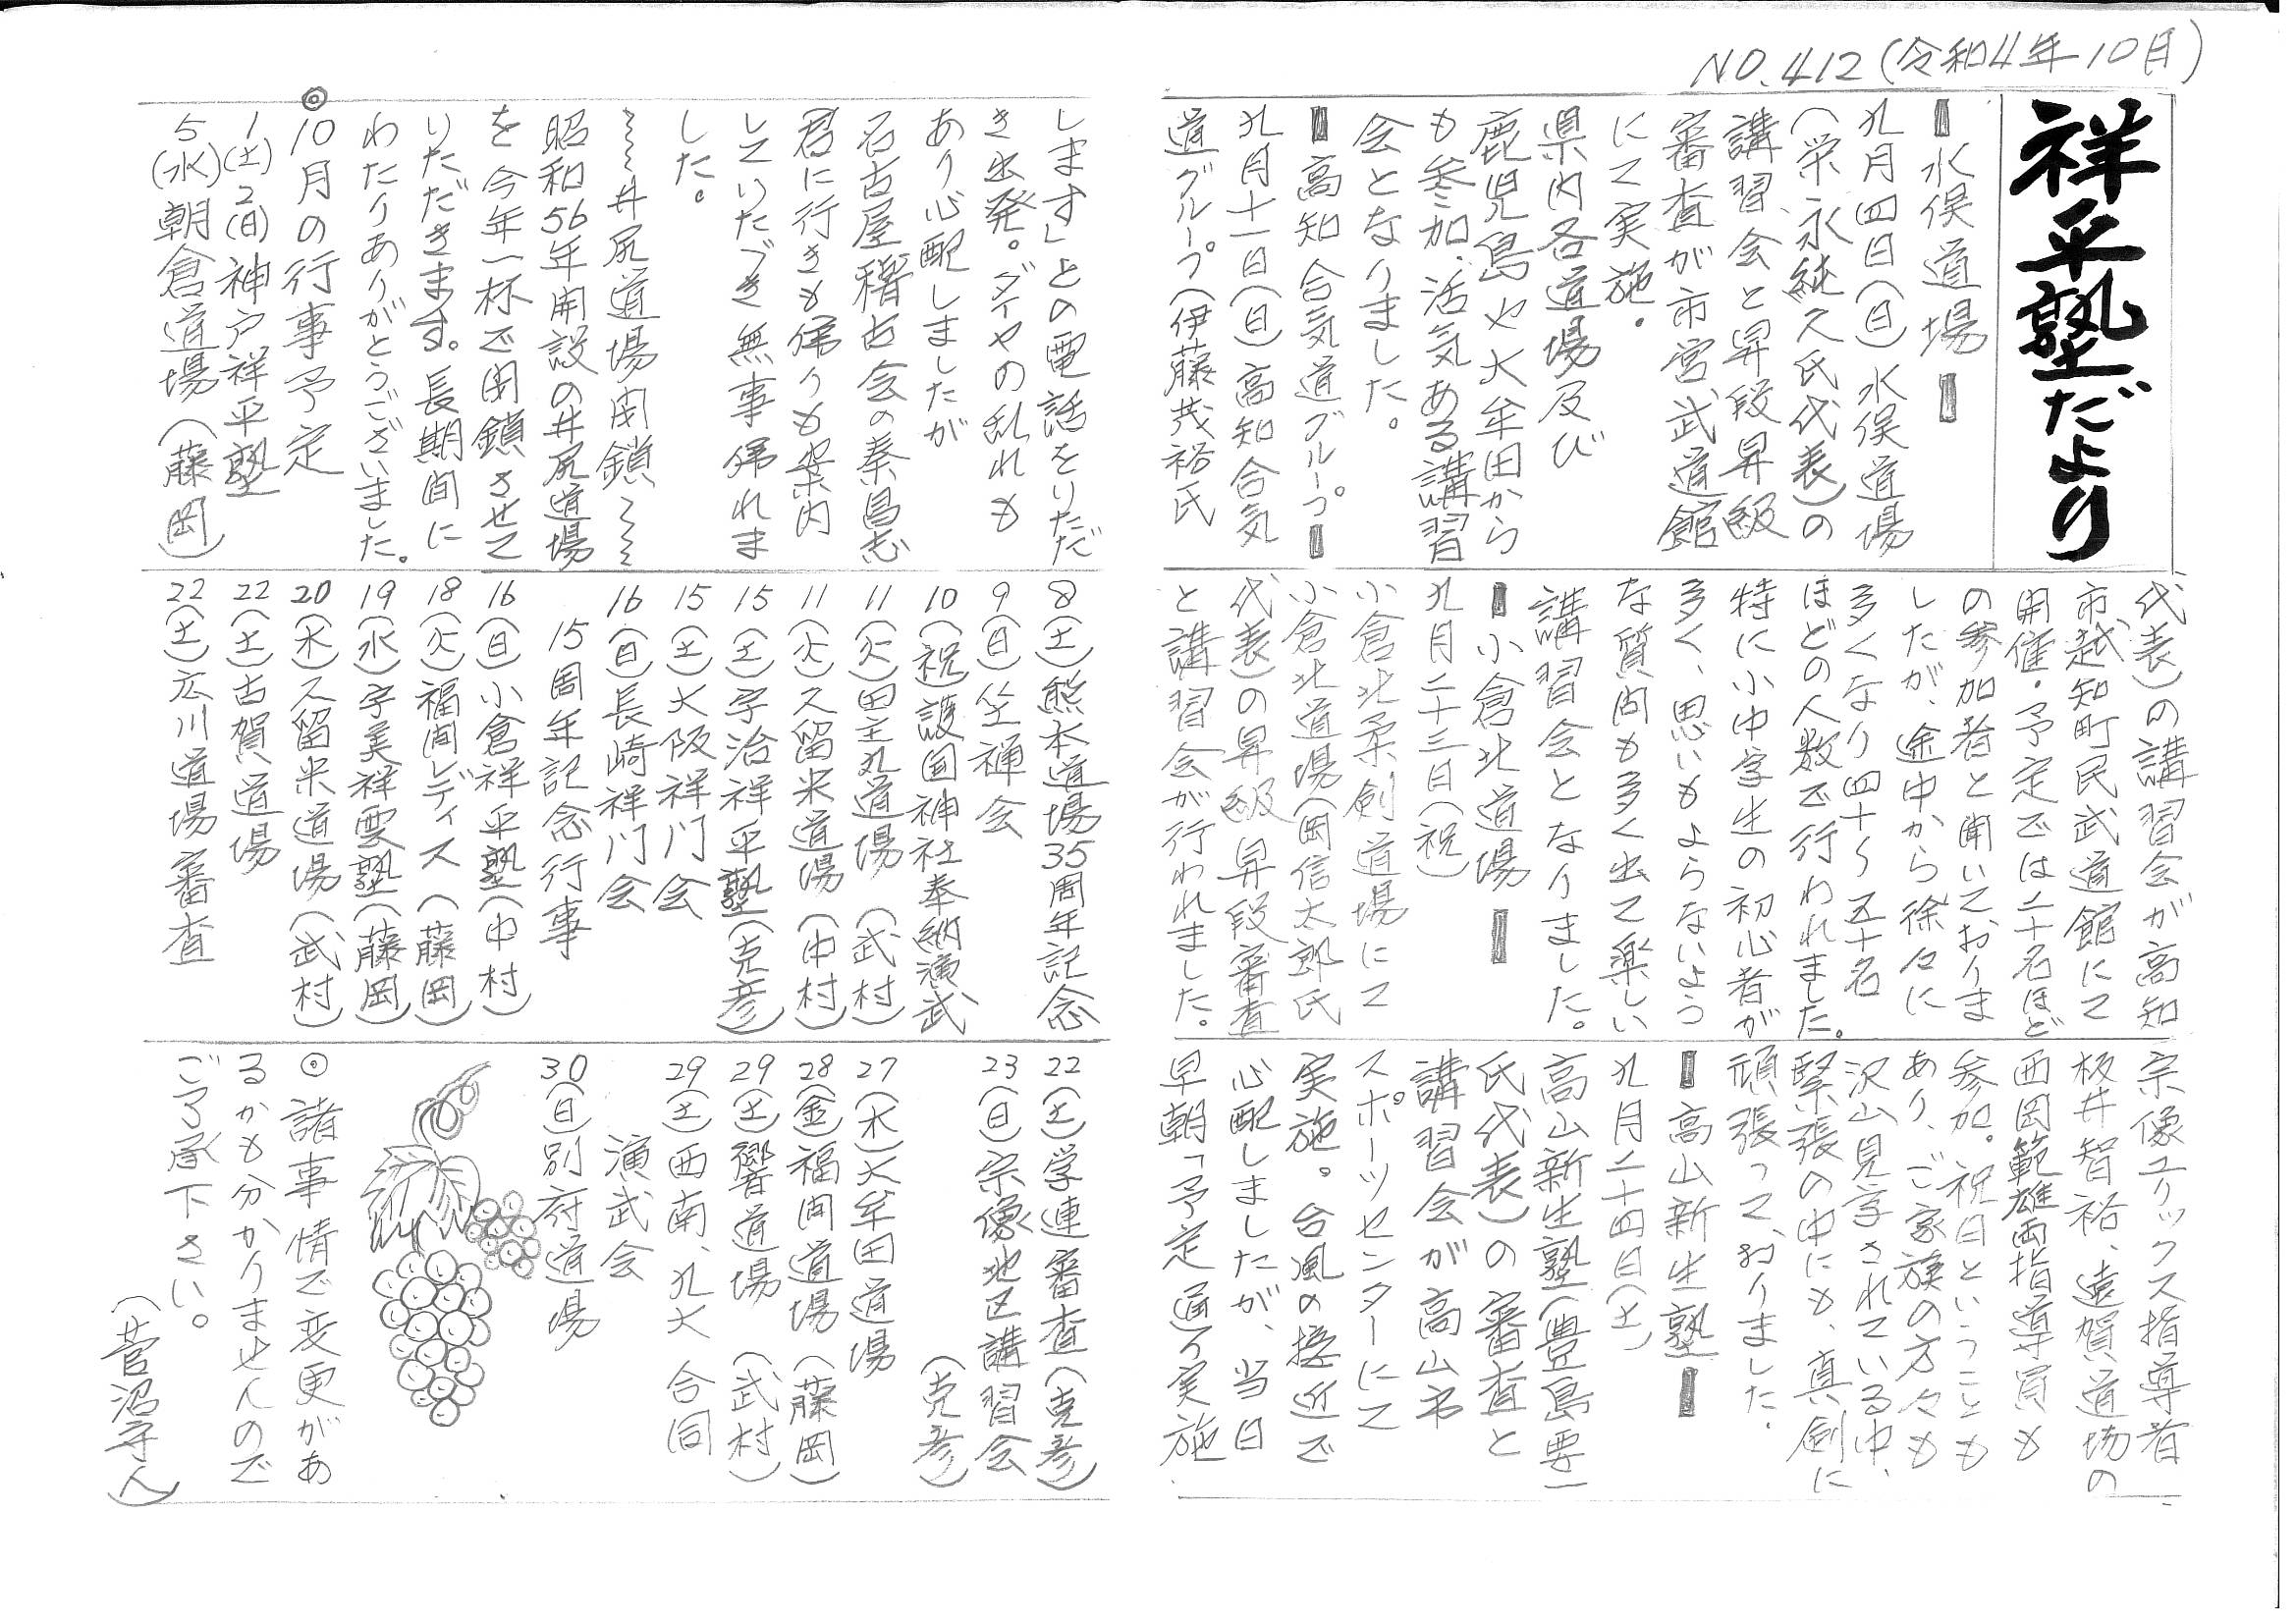 NO.412(令和4年10月)
祥平塾だより
水俣道場
九月四日(日)水俣道場
(栄永純久氏代表)の
講習会と昇段昇級
審査が市宮武道館
にて実施。
県内各道場及び
鹿児島や大牟田から
も参加、活気ある講習
会となりました。
高知合気道グループ
九月十一日(日)高知合気
道グループ(伊藤茂裕氏
代表)の講習会が高知
市越知町民武道館にて
開催・予定では二十名ほど
の参加者と聞いておりま
したが、途中から徐々に
多くなり四十〜五十名
ほどの人数で行われました。
特に小中学生の初心者が
多く、思いもよらないよう
な質問も多く出て楽しい
講習会となりました。
小倉北道場
九月二十三日(祝)
小倉北柔剣道場にて
小倉北道場(岡信太郎氏
代表)の昇級昇段審査
と講習会が行われました。
宗像ユリックス指導者
板井智裕、遠賀道場の
西岡範雄両指導員も
参加。祝日ということも
あり、ご家族の方々も
沢山見学されている中、
緊張の中にも、真剣に
頑張って、おりました。
高山新生塾
九月二十四日(土)
高山新生塾(豊島要一
氏代表)の審査と
講習会が高山市
スポーツセンターにて
実施。台風の接近で
心配しましたが、当日
早朝「予定通り実施
します」との電話をいただ
き出発。ダイヤの乱れも
あり心配しましたが
名古屋稽古会の秦昌志
君に行きも帰りも案内
していただき無事帰れま
した。
〜〜井尻道場閉鎖〜〜
昭和56年開設の井尻道場
を今年一杯で閉鎖させて
いただきます。長期間に
わたりありがとうございました。
◎10月の行事予定
1(土)2(日)神戸祥平塾
5(水)朝倉道場(藤岡)
8(土)熊本道場35周年記念
9(日)坐禅会
10(祝)護国神社奉納演武
11(火)田主丸道場(武村)
11(火)久留米道場(中村)
15(土)宇治祥平塾(克彦)
15(土)大阪祥門会
16(日)長崎祥門会
15周年記念行事
16(日)小倉祥平塾(中村)
18(火)福岡レディス(藤岡)
19(水)宇美祥雲塾(藤岡)
20(木)久留米道場(武村)
22(土)古賀道場
22(土)広川道場審査
22(土)学連審査(克彦)
23(日)宗像地区講習会
(克彦)
27(木)大牟田道場
28(金)福岡道場(藤岡)
29(土)響道場(武村)
29(土)西南、九大合同
演武会
30(日)別府道場
◎諸事情で変更があ
るかも分かりませんので
ご了承下さい。
(菅沼守人)